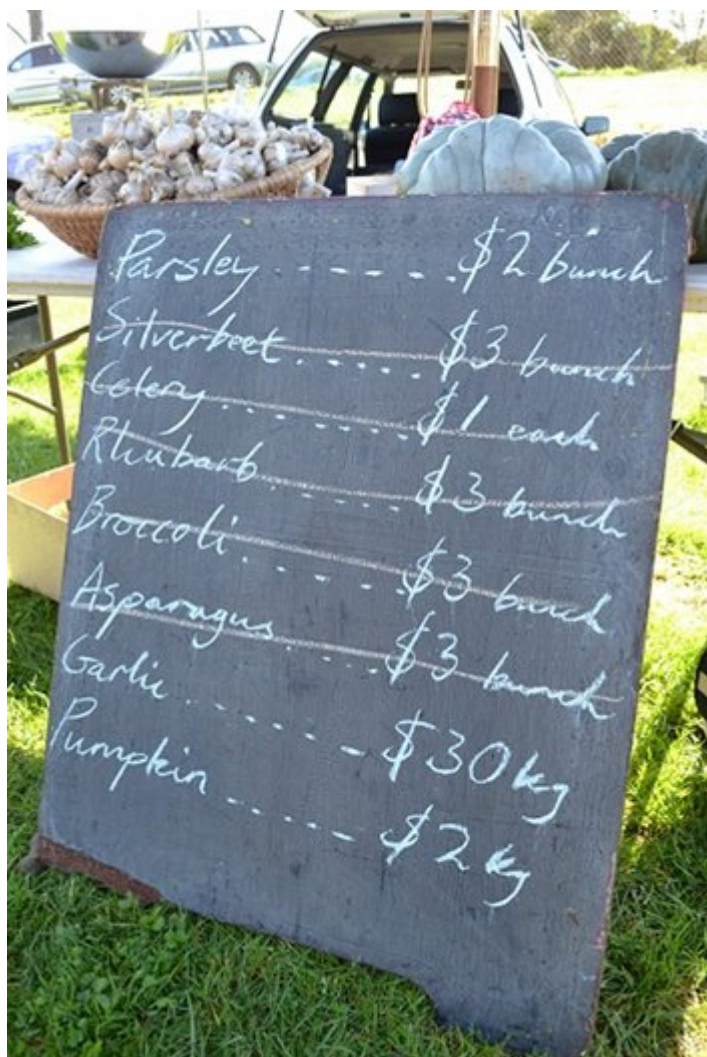 Parsley ....... $2 bunch
Silverbeet ...... $3 bunch
Celery ........ $1 each
Rhubarb ...... $3 bunch
Broccoli ...... $3 bunch
Asparagus ..... $3 bunch
Garlic ....... $30 kg
Pumpkin ....... $2 kg